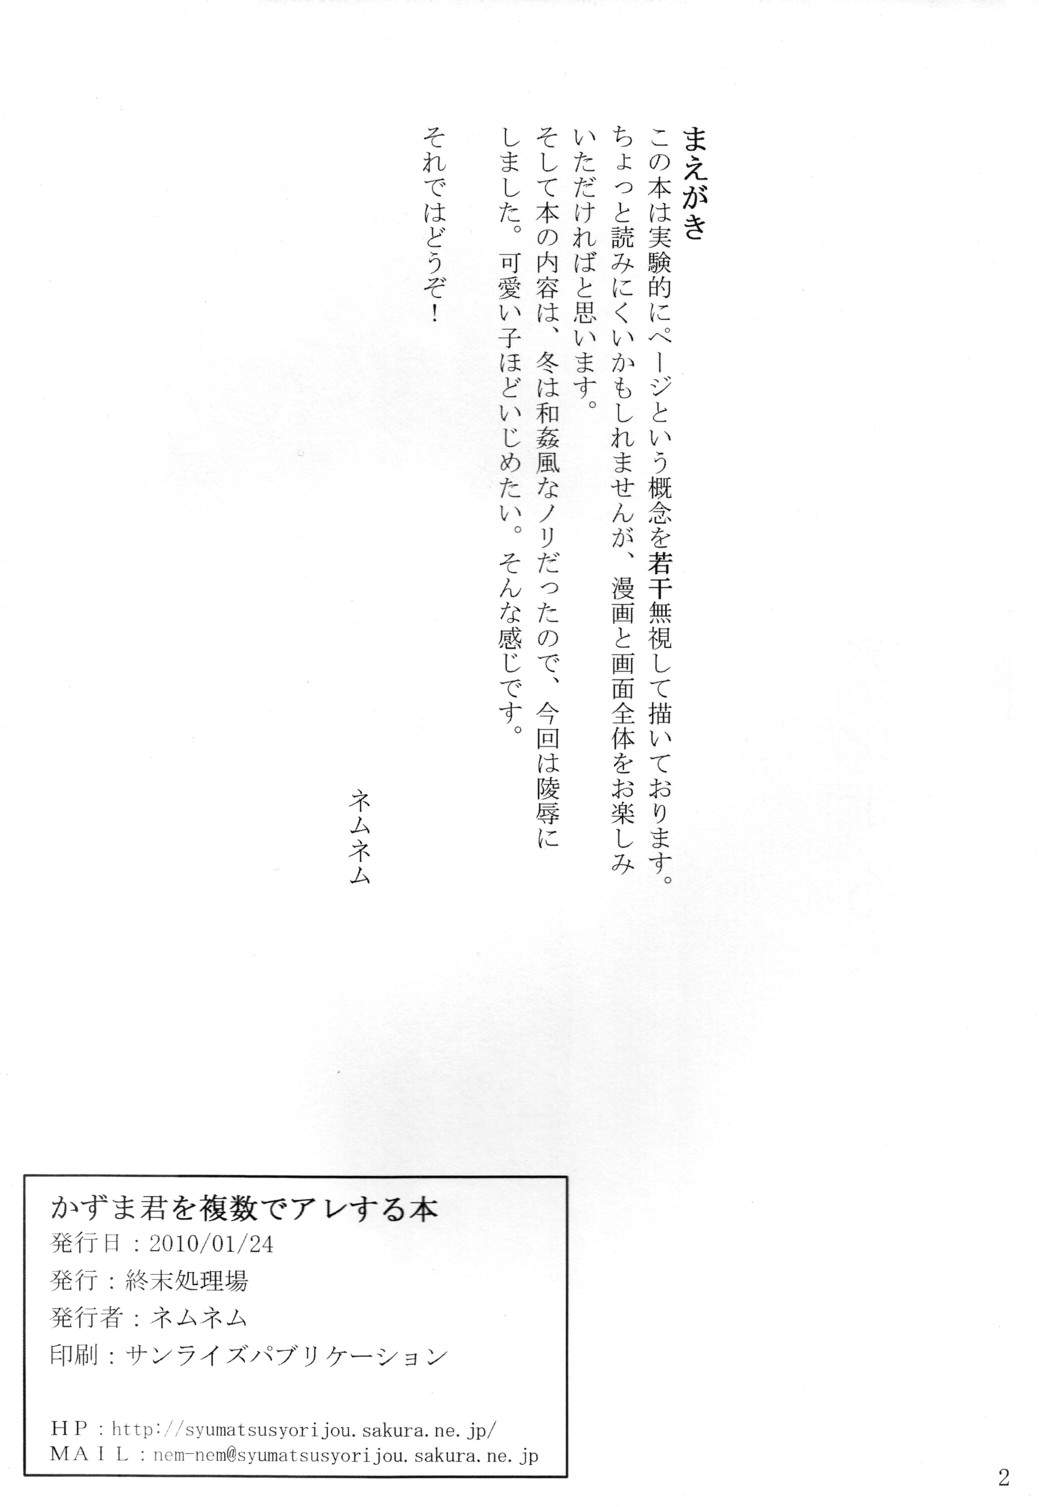 まえがき
この本は実験的にページという概念を若干無視して描いております。
ちょっと読みにくいかもしれませんが、漫画と画面全体をお楽しみ
いただければと思います。
そして本の内容は、冬は和姦風なノリだったので、今回は陵辱に
しました。可愛い子ほどいじめたい。そんな感じです。
それではどうぞ！
ネムネム
かずま君を複数でアレする本
発行日：2010/01/24
発行：終末処理場
発行者：ネムネム
印刷：サンライズパブリケーション
ＨＰ：http://syumatsusyorijou.sakura.ne.jp/
ＭＡＩＬ：nem-nem@syumatsusyorijou.sakura.ne.jp
2